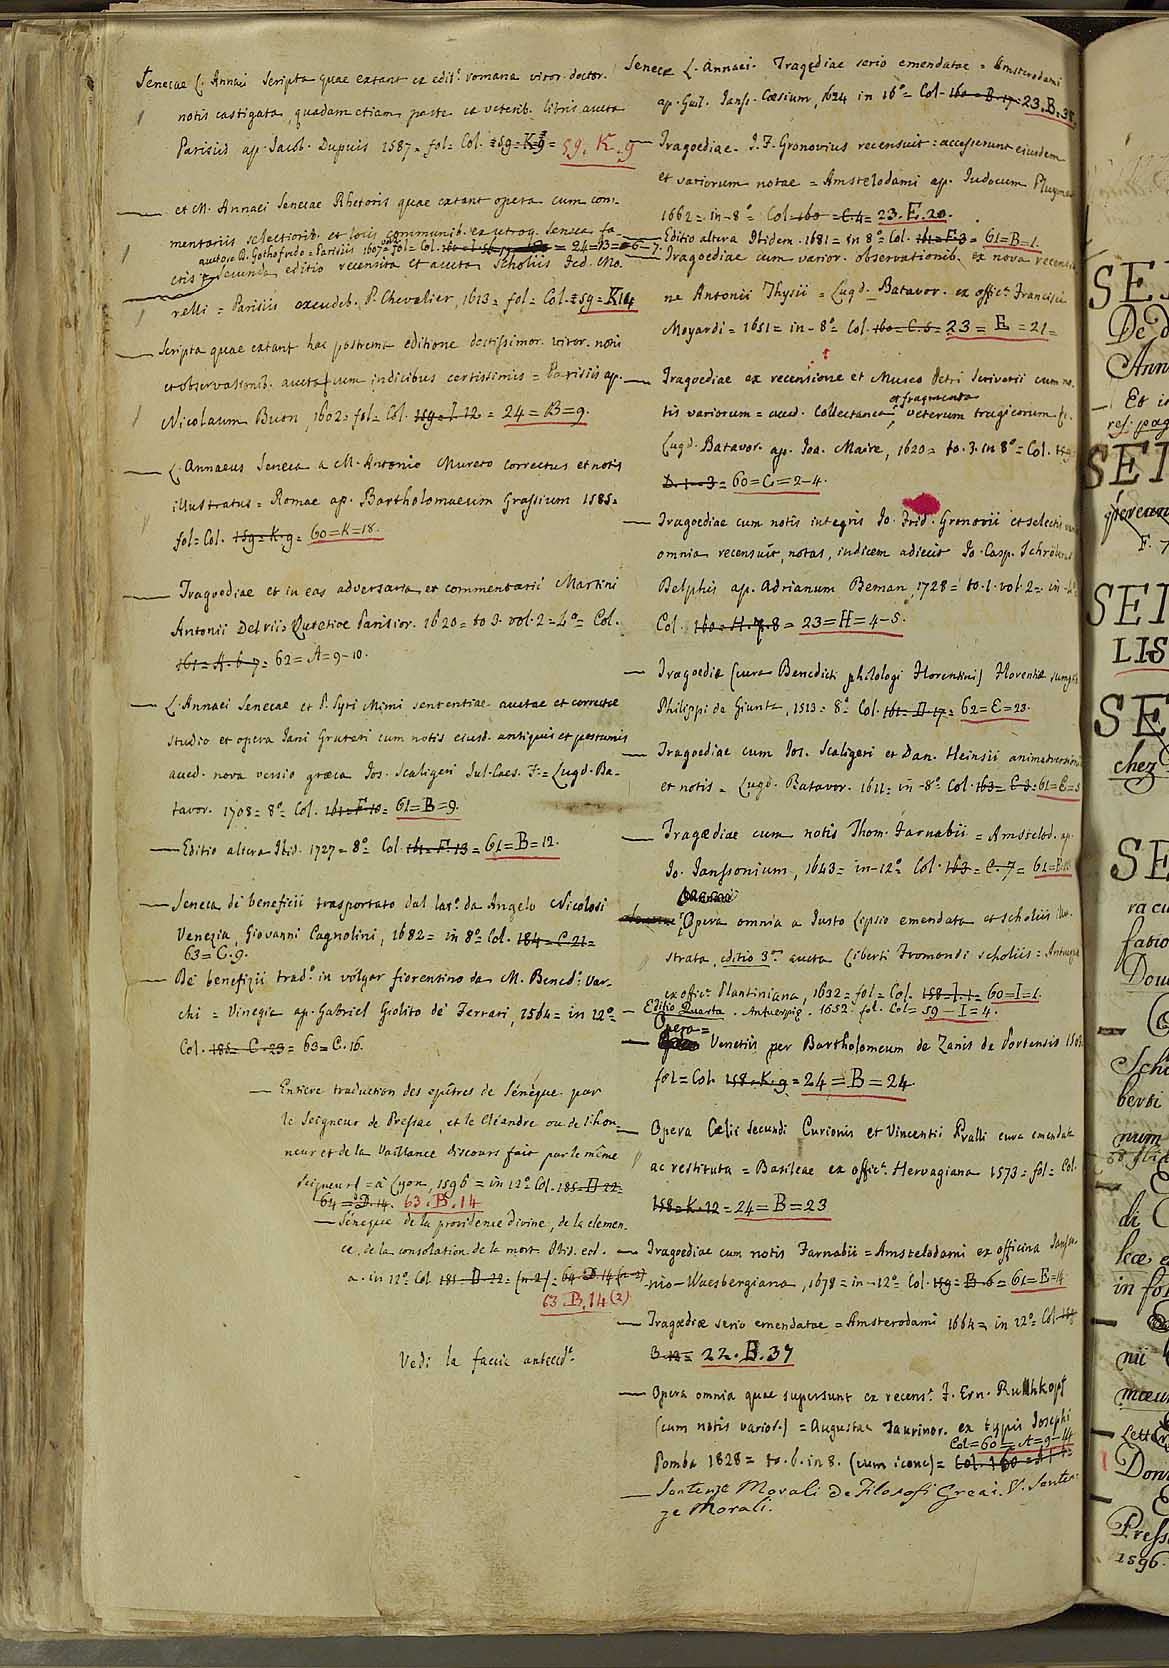 Senecae L. Annaei Scripta quae extant ex edit.e romana viror. doctor.
notis castigata, quaedam etiam parte ex veterib. libris aucta
Parisiis ap. Jacob. Dupuis 1587 = fol = Col. 59 = K 9 = 59. K. 9
— et M. Annaei Senecae Rhetoris quae extant opera cum com=
mentariis selectiorib. et locis communib. ex utroq. Seneca fa=
auctore D. Gothofredo = Parisiis 1607 = fol = Col. = 24 = B = 6-7.
ctis = Secunda editio recensita et aucta Scholiis Fed. Mo=
relli = Parisiis excudeb. P. Chevalier, 1613 = fol = Col = 59 = K 14
— Scripta quae extant hac postrema editione doctissimor. viror. notis
et observationib. aucta, cum indicibus certissimis = Parisiis ap.
Nicolaum Buon, 1602 = fol = Col. 159 = I. 12 = 24 = B = 9.
— L. Annaeus Seneca a M. Antonio Mureto correctus et notis
illustratus = Romae ap. Bartholomaeum Grassium 1585 =
fol = Col. 159 = K. 9 = 60 = K = 18.
— Tragoediae et in eas adversaria, et commentarii Martini
Antonii Delrii = Lutetiae Parisior. 1620 = to 3. vol. 2 = 4.o = Col.
161 = A. 6-7 = 62 = A = 9-10.
— L. Annaei Senecae et P. Syri Mimi sententiae auctae et correctae
studio et opera Jani Gruteri cum notis eiusd. antiquis et postumis
acced. nova versio græca Jos. Scaligeri Jul. Caes. F. = Lugd. Ba=
tavor. 1708 = 8.o Col. 161 = F. 10 = 61 = B = 9.
— Editio altera Ibid. 1727 = 8.o Col. 161 = F. 13 = 61 = B = 12.
— Seneca de' beneficii trasportato dal lat.o da Angelo Nicolosi
Venezia, Giovanni Cagnolini, 1682 = in 8.o Col. 184 = C. 21 =
63 = C. 9.
— De' benefizii trad.o in volgar fiorentino da M. Bened.o Var=
chi = Vinegia ap. Gabriel Giolito de' Ferrari, 1564 = in 12.o =
Col. 185 = C. 23 = 63 = C. 16.
— Entiere traduction des epîtres de Sénèque par
le Seigneur de Pressac, et le Cléandre ou de l'hon=
neur et de la Vaillance discours fait par le même
Seigneur = à Lyon, 1596 = in 12.o Col. 185 = D 22 =
64 = D. 14. 63. B. 14
— Sénèque de la providence divine, de la clemen=
ce, de la consolation de la mort. Ibid. eod.
a. in 12.o Col 185 = D. 22 = (n. 2) = 64. D. 14 (n. 2)
63. B. 14 (2)
Vedi la faccia anteced.e
Senecæ L. Annaei. Tragœdiae serio emendatae = Amsterodami
ap. Guil. Janss. Cæsium, 1624 in 16.o = Col. 160 = B. 17. 23. B. 35.
— Tragoediae. J. F. Gronovius recensuit: accesserunt eiusdem
et variorum notae = Amstelodami ap. Judocum Pluymer
1662 = in-8.o Col 160 = C. 4 = 23. E. 20.
— Editio altera Ibidem. 1681 = in 8.o Col. 161 = F. 3 = 61 = B = 1.
— Tragoediae cum varior. observationib. ex nova recensio
ne Antonii Thysii = Lugd. Batavor. ex offic.a Francisci
Moyardi = 1651 = in-8.o Col 160 = C. 5 = 23 = E = 21 =
— Tragoediae ex recensione et Museo Petri Scriverii cum no=
et fragmenta
tis variorum = acced. Collectanea veterum tragicorum
Lugd. Batavor. ap. Joa. Maire, 1620 = to. 3. in 8.o = Col.
D. 1-3 = 60 = C = 2-4.
— Tragoediae cum notis integris Jo. Frid. Gronovii et selectis
omnia recensuit, notas, indicem adiecit Jo. Casp. Schröderus
Delphis ap. Adrianum Beman, 1728 = to. 1. vol. 2 = in-4.o
Col. 160 = H. 7. 8 = 23 = H = 4-5.
— Tragoediæ (cura Benedicti philologi Florentini) Florentiæ sumptu
Philippi de Giunta, 1513 = 8.o Col. 161 = D. 17 = 62 = E = 23.
— Tragoediae cum Jos. Scaligeri et Dan. Heinsii animadversionib.
et notis = Lugd. Batavor. 1611 = in-8.o Col. 163 = C. 3 = 61 = E = 5
— Tragœdiae cum notis Thom. Farnabii = Amstelod. ap.
Jo. Janssonium, 1643 = in-12.o Col. 163 = C. 7 = 61 =
Opera omnia a Justo Lipsio emendata et scholiis illu=
strata, editio 3.a aucta Liberti Fromondi scholiis = Antuerp.
ex offic.a Plantiniana, 1632 = fol = Col. 158 = I. 1 = 60 = I = 1.
— Editio Quarta. Antuerpiæ. 1652. fol. Col = 59 — I = 4.
Opera =
— Venetiis per Bartholomeum de Zanis de Portensis 1503
fol = Col. 158. K. 9 = 24 = B = 24
— Opera Cælii Secundi Curionis et Vincentii Pralli cura emendata
ac restituta = Basileae ex offic.a Hervagiana 1573 = fol = Col.
158 = K. 12 = 24 = B = 23
— Tragoediae cum notis Farnabii = Amstelodami ex officina Jansso=
nio-Waesbergiana, 1678 = in-12.o Col. 159 = B. 6 = 61 = E = 14
— Tragœdiæ serio emendatae = Amsterodami 1664 = in 12.o Col
B. 12 = 22. B. 37
— Opera omnia quae supersunt ex recens.e F. Ern. Ruhkopf
(cum notis varior.) = Augustae Taurinor. ex typis Josephi
Col = 60 = A = 9-14
Pomba 1828 = to. 6. in 8. (cum icone) = Col. 160 =
— Sentenze Morali de Filosofi Greci. V. Senten=
ze Morali.